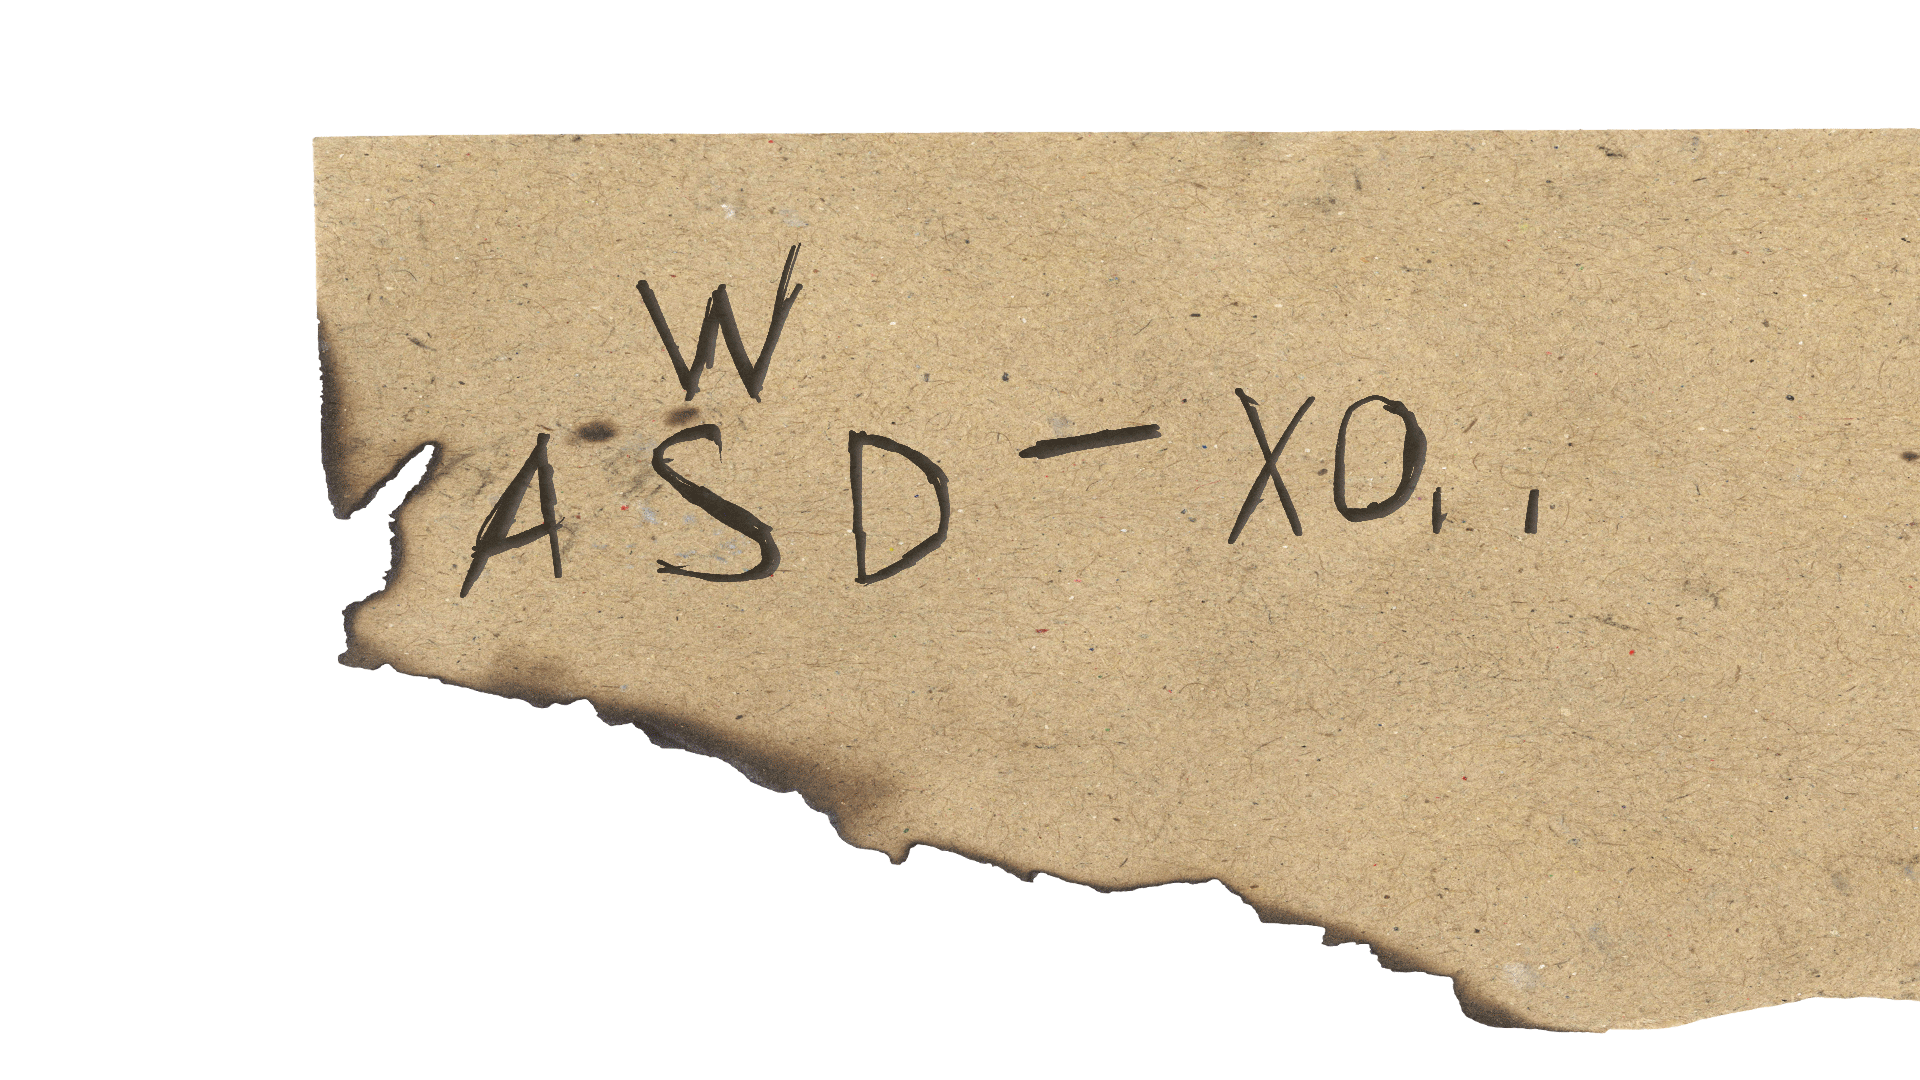 W
A S D — XO..